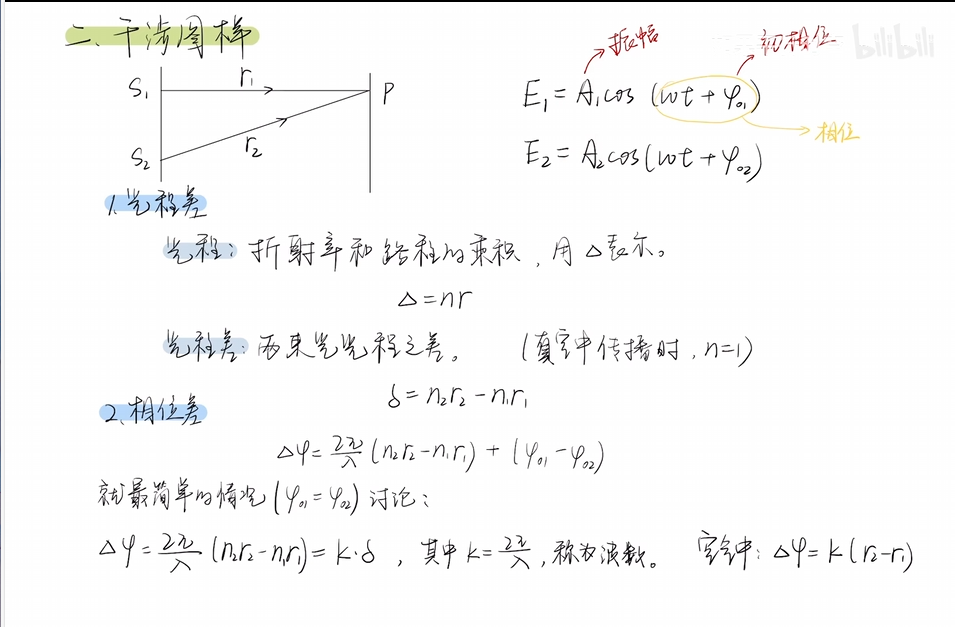 二、干涉图样
bilibili
振幅
初相位
S₁ r₁ P
S₂ r₂
E₁ = A₁cos (ωt + φ₀₁)
相位
E₂ = A₂cos(ωt + φ₀₂)
1.光程差
光程: 折射率和路程的乘积, 用△表示。
△=nr
光程差: 两束光光程之差。 (真空中传播时, n=1)
δ = n₂r₂ - n₁r₁
2.相位差
△φ = 2π/λ (n₂r₂-n₁r₁) + (φ₀₁ - φ₀₂)
就最简单的情况 (φ₀₁ = φ₀₂) 讨论:
△φ = 2π/λ (n₂r₂-n₁r₁) = k·δ , 其中 k = 2π/λ , 称为波数。 真空中: △φ = k (r₂-r₁)